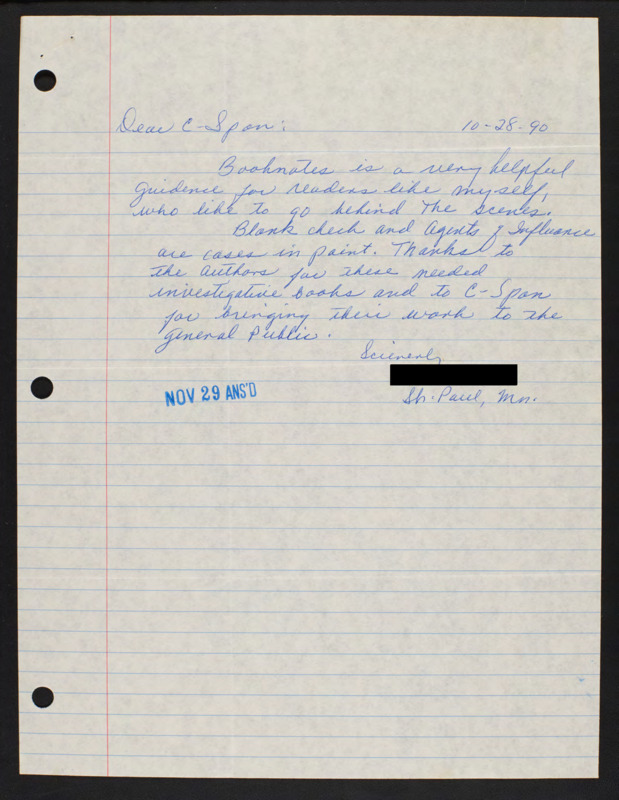 Dear C-Span: 10-28-90
Booknotes is a very helpful
guidence for readers like myself,
who like to go behind the scenes.
Blank check and Agents of Influence
are cases in point. Thanks to
the authors for these needed
investigative books and to C-Span
for bringing their work to the
general public.
Scienerly
St. Paul, Mn.
NOV 29 ANS'D